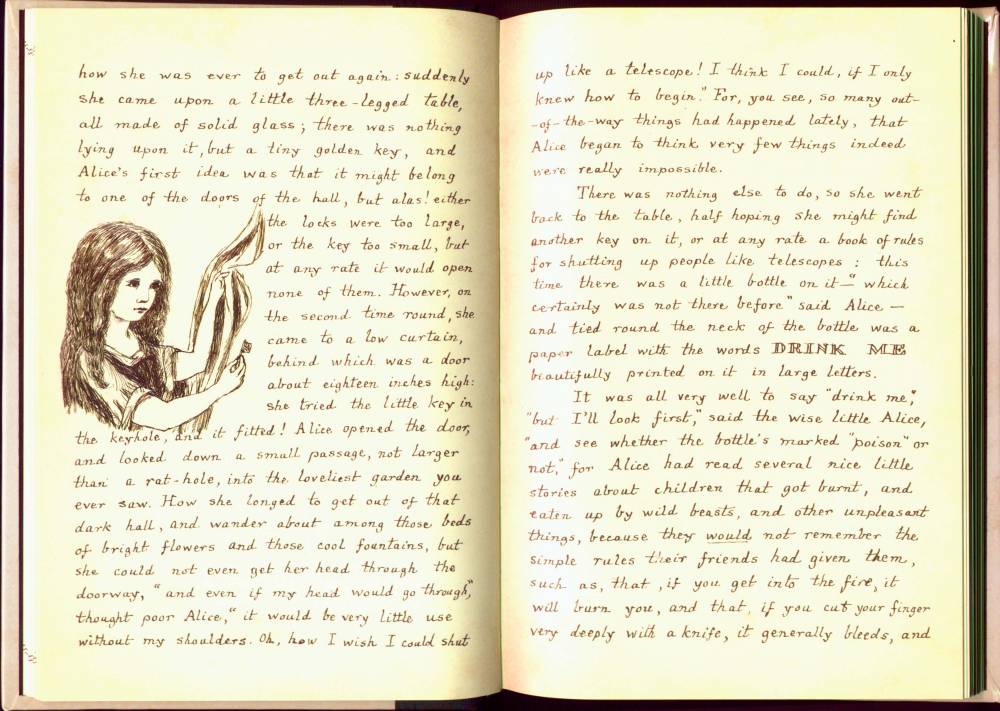 how she was ever to get out again: suddenly
she came upon a little three-legged table,
all made of solid glass; there was nothing
lying upon it, but a tiny golden key, and
Alice's first idea was that it might belong
to one of the doors of the hall, but alas! either
the locks were too large,
or the key too small, but
at any rate it would open
none of them. However, on
the second time round, she
came to a low curtain,
behind which was a door
about eighteen inches high:
she tried the little key in
the keyhole, and it fitted! Alice opened the door,
and looked down a small passage, not larger
than a rat-hole, into the loveliest garden you
ever saw. How she longed to get out of that
dark hall, and wander about among those beds
of bright flowers and those cool fountains, but
she could not even get her head through the
doorway, "and even if my head would go through,"
thought poor Alice, "it would be very little use
without my shoulders. Oh, how I wish I could shut
up like a telescope! I think I could, if I only
knew how to begin." For, you see, so many out-
-of-the-way things had happened lately, that
Alice began to think very few things indeed
were really impossible.
There was nothing else to do, so she went
back to the table, half hoping she might find
another key on it, or at any rate a book of rules
for shutting up people like telescopes: this
time there was a little bottle on it—"which
certainly was not there before" said Alice—
and tied round the neck of the bottle was a
paper label with the words DRINK ME
beautifully printed on it in large letters.
It was all very well to say "drink me,"
"but I'll look first," said the wise little Alice,
"and see whether the bottle's marked "poison" or
not," for Alice had read several nice little
stories about children that got burnt, and
eaten up by wild beasts, and other unpleasant
things, because they would not remember the
simple rules their friends had given them,
such as, that, if you get into the fire, it
will burn you, and that, if you cut your finger
very deeply with a knife, it generally bleeds, and